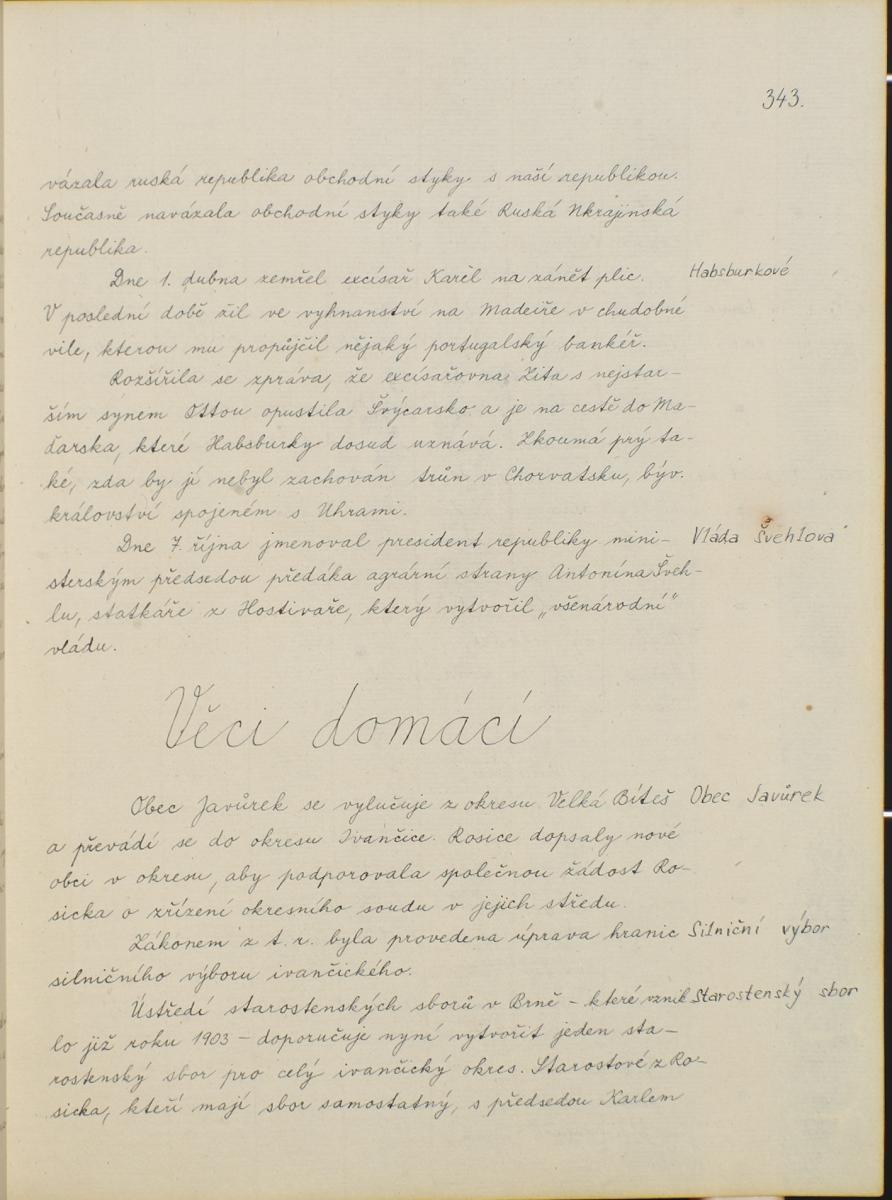 343.
vázala ruská republika obchodní styky s naší republikou.
Současně navázala obchodní styky také Ruská Ukrajinská
republika.
Dne 1. dubna zemřel excísař Karel na zánět plic. Habsburkové
V poslední době žil ve vyhnanství na Madeiře v chudobné
vile, kterou mu propůjčil nějaký portugalský bankéř.
Rozšířila se zpráva, že excísařovna Zita s nejstar-
ším synem Ottou opustila Švýcarsko a je na cestě do Ma-
ďarska, které Habsburky dosud uznává. Zkoumá prý ta-
ké, zda by jí nebyl zachován trůn v Chorvatsku, býv.
království spojeném s Uhrami.
Dne 7. října jmenoval president republiky mini- Vláda Švehlova
sterským předsedou předáka agrární strany Antonína Šveh-
lu, statkáře z Hostivaře, který vytvořil „všenárodní"
vládu.
Věci domácí
Obec Javůrek se vylučuje z okresu Velká Bíteš Obec Javůrek
a převádí se do okresu Ivančice. Rosice dopsaly nové
obci v okresu, aby podporovala společnou žádost Ro-
sicka o zřízení okresního soudu v jejich středu.
Zákonem z t. r. byla provedena úprava hranic Silniční výbor
silničního výboru ivančického.
Ústředí starostenských sborů v Brně - které vznik Starostenský sbor
lo již roku 1903 - doporučuje nyní vytvořit jeden sta-
rostenský sbor pro celý ivančický okres. Starostové z Ro-
sicka, kteří mají sbor samostatný, s předsedou Karlem